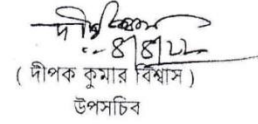 দীপক
৪/৪/২২
( দীপক কুমার বিশ্বাস )
উপসচিব